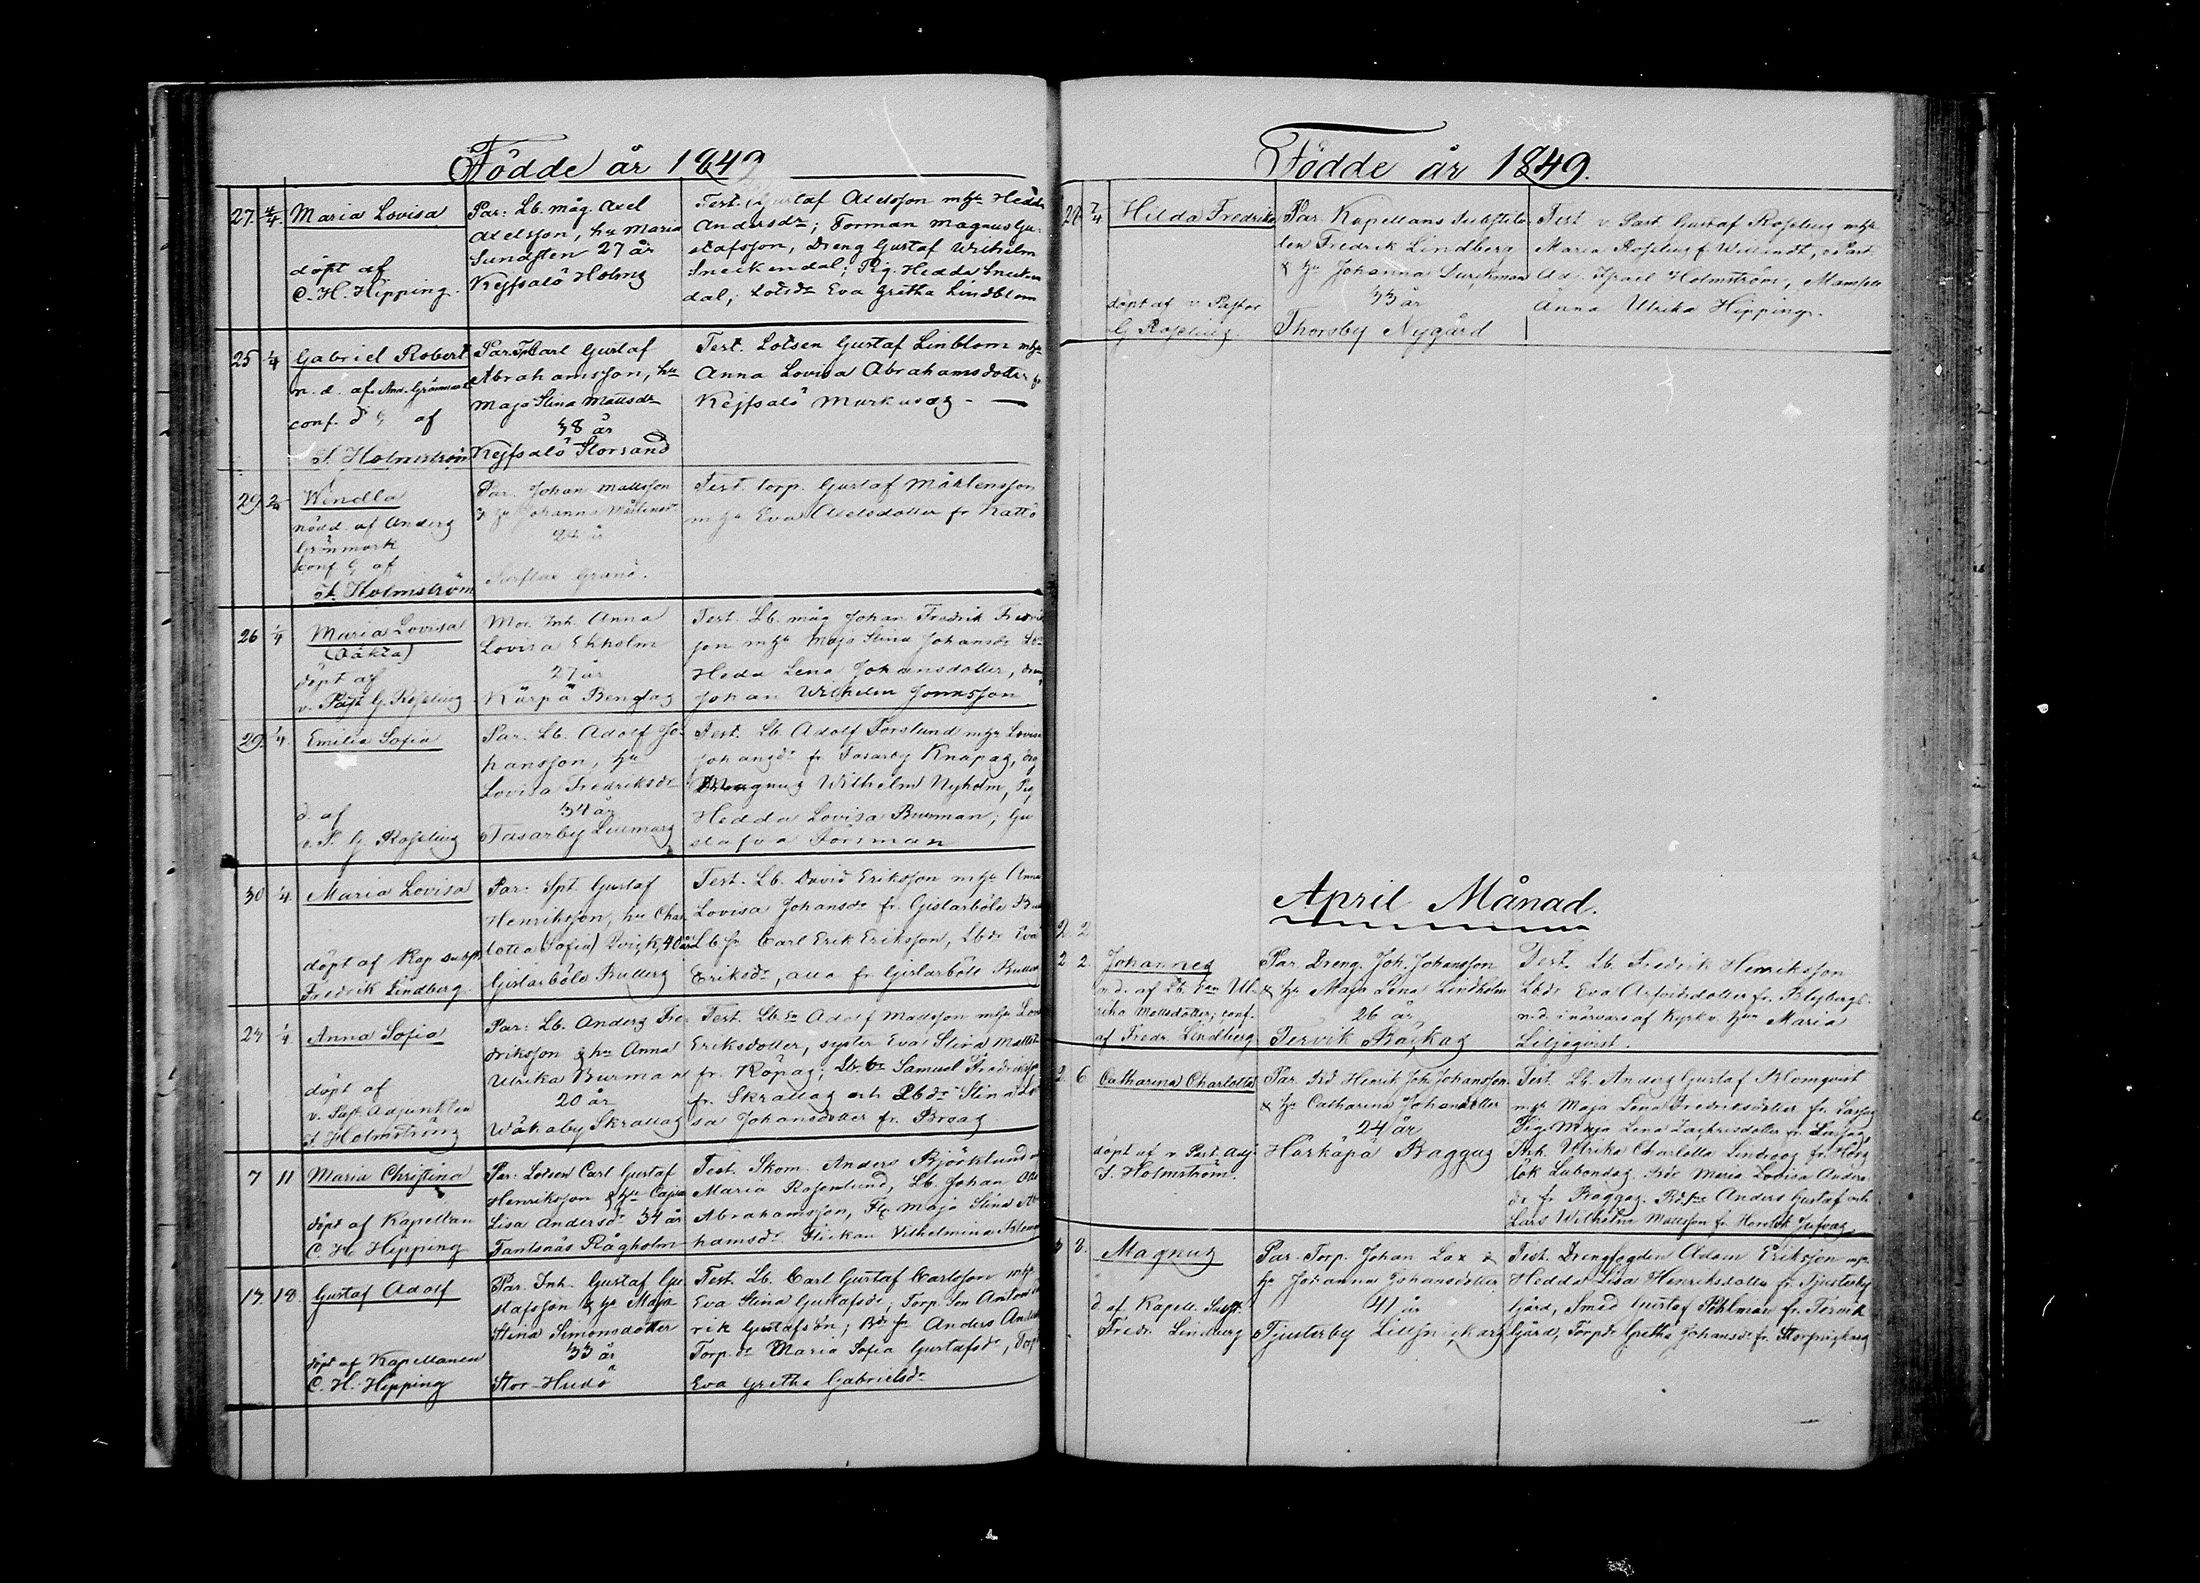 Födde år 1849
27. 4/4. Maria Lovisa
döpt af
C. H. Hipping.
Par: Lb. måg Axel
Axelsson, hu Maria
Sundsten 27 år
Kejfsalö Holmg
Test. Gustaf Axelsson m hu Hedda
Andersdr; Forman Magnus Gu-
stafsson, Dreng Gustaf Wilhelm
Sneckendal; Pig. Hedda Snecken
dal; Lotsdr Eva Gretha Lindblom
25 1/4 Gabriel Robert
n. d. af And. Grönmark
conf. af
I. Holmström
Par. Carl Gustaf
Abrahamsson, hu
Maja Stina Mattsdr
38 år
Kejfsalö Storsand
Test. Lotsen Gustaf Linblom m hu
Anna Lovisa Abrahamsdotter fr
Kejfsalö Markusag
29. 2/4 Wendla
nödd. af Anders
Grönmark
conf af
I. Holmström
Par. Johan Mattsson
& hu Johanna Mårtensdr
24 år
Granö.
Test. torp. Gustaf Mårtensson
m hu Eva Axelsdotter fr Kattö
26 1/4 Maria Lovisa
(Oäkta)
döpt af
v. Past. G. Roselius
Mor. Inh. Anna
Lovisa Ekholm
27 år
Kärpä Bengtag
Test. Lb. måg Johan Fredrik Fredrik
son m hu Maja Stina Johansdr Lbdr
Heda Lena Johansdotter, dren
Johan Wilhelm Jonnsson
29. 1/4. Emilia Sofia
d. af
v. P. G. Roselius
Par. Lb. Adolf Jo-
hansson, hu
Lovisa Fredriksdr
34 år
Tasarby Lillmars
Test. Lb Adolf Forslund m hu Lovisa
Johansdr fr Tasarby Knapag, drg
Magnus Wilhelm Nyholm, Pig
Hedda Lovisa Burman; Gu
stafva Forsman
30 1/4. Maria Lovisa
döpt af Kap subst.
Fredrik Lindberg.
Par: Spt Gustaf
Henriksson, hu Char
lotta (Sofia) 40 år
Gislarböle Butters
Test. Lb. David Eriksson m hu Anna
Lovisa Johansdr fr. Gislarböle
Lb sn Carl Erik Eriksson, Lbdr Eva
Eriksdr, alla fr Gislarböle
24 1/4 Anna Sofia
döpt af
v. Past. Adjunkten
I. Holmström
Par: Lb. Anders Fre-
driksson & hu Anna
Ulrika Burman
20 år
Wåkaby Skrallag
Test. Lb. sn Adolf Mattsson m hu Lov
Eriksdotter, syster Eva Stina Matts
fr. Röpag; Lb. sn Samuel Fredriksson
fr. Skrallag och Lbdr Stina Lovi
sa Johansdotter fr. Broag
7 11 Maria Christina
döpt af Kapellan
C. H. Hipping
Par: Lotsen Carl Gustaf
Henriksson & hu Cajsa
Lisa Andersdr 34 år
Fantsnäs Rågholm
Test. Skom. Anders Björklund
Maria Rosenlund, Lb. Johan Otto
Abrahamsson, Fl. Maja Stina Abra
hamsdr Flickan Vilhelmina Blom
17. 18. Gustaf Adolf
döpt af Kapellanen
C. H. Hipping
Par. Inh. Gustaf Gu
stafsson & hu Maja
Stina Simonsdotter
33 år
Stor-Hudö
Test. Lb. Carl Gustaf Carlsson m hu
Eva Stina Gustafsdr; Torp. Son Anton
rik Gustafson; Anders
Torp. dr Maria Sofia Gustafsdr,
Eva Gretha Gabrielsdr
Födde år 1849.
7/4 Hilda Fredrika
döpt af v Pastor
G Roselius.
Par. Kapellans Substitu
ten Fredrik Lindberg
& hu Johanna
33 år
Thorsby Nygård
Test v. Past. Gustaf Roselius m hu
Maria Roselius f. v Past.
Ad. Israel Holmström, Mamsell
Anna Ulrika Hipping.
April Månad.
2 2
2 2. Johannes
n. d. af Lb. Eva Ul-
rika Mattsdotter; conf.
af Fredr. Lindberg
Par. Dreng. Joh. Johansson
& hu Maja Lena Lindholm
26 år
Tervik Backag
Test. Lb. Fredrik Henriksson
Lbdr Eva fr.
n. d. i närvaro af Kyrkv. hun Maria
Liljeqvist.
2. 6. Catharina Charlotta
döpt af v. Past. Adj.
I. Holmström.
Par. Bd Henrik Joh. Johansson
& hu Catharina Johansdotter
24 år
Härkäpä Baggas
Test. Lb. Anders Gustaf Blomqvist
m hu Maja Lena Fredriksdotter fr.
Pig. Maja Lena fr.
Ulrika Charlotta
Maria Lovisa Anders
dr fr Baggag. Anders Gustaf och
Lars Wilhelm Mattsson fr.
3 8. Magnus
d af Kapell. Subst.
Fredr. Lindberg
Par. Torp. Johan Lax &
hu Johanna Johansdotter
41 år
Tjusterby
Test. Drengfogden Adam Eriksson m
Hedda Lisa Henriksdotter fr Tjusterby
Gård, Smed Gustaf Pehlman fr. Tervik
Gård, Torpdr Gretha Johansdr fr.